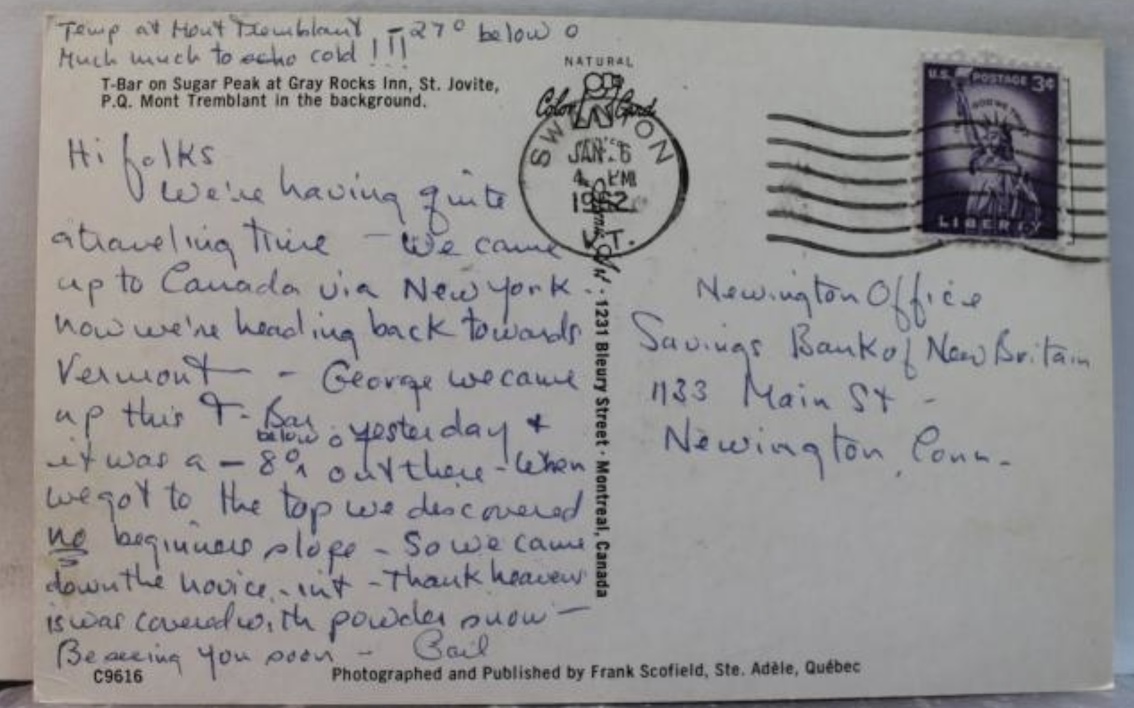 Temp at Mont Tremblant -27° below 0
Much much to echo cold !!!
T-Bar on Sugar Peak at Gray Rocks Inn, St. Jovite,
P.Q. Mont Tremblant in the background.
Hi folks
We're having quite
a traveling time - We came
up to Canada via New York -
now we're heading back towards
Vermont - - George we came
up this T-Bar yesterday +
below 0
it was a -8° out there - When
we got to the top we discovered
no beginners slope - So we came
down the novice - int - Thank heavens
is was covered with powder snow -
Be seeing you soon - Gail
C9616
Photographed and Published by Frank Scofield, Ste. Adèle, Québec
NATURAL
Color Card
1231 Bleury Street · Montreal, Canada
SWANTON
JAN 6
4 PM
1962
VT.
U.S. POSTAGE 3¢
IN GOD WE TRUST
LIBERTY
Newington Office
Savings Bank of New Britain
1133 Main St -
Newington, Conn -